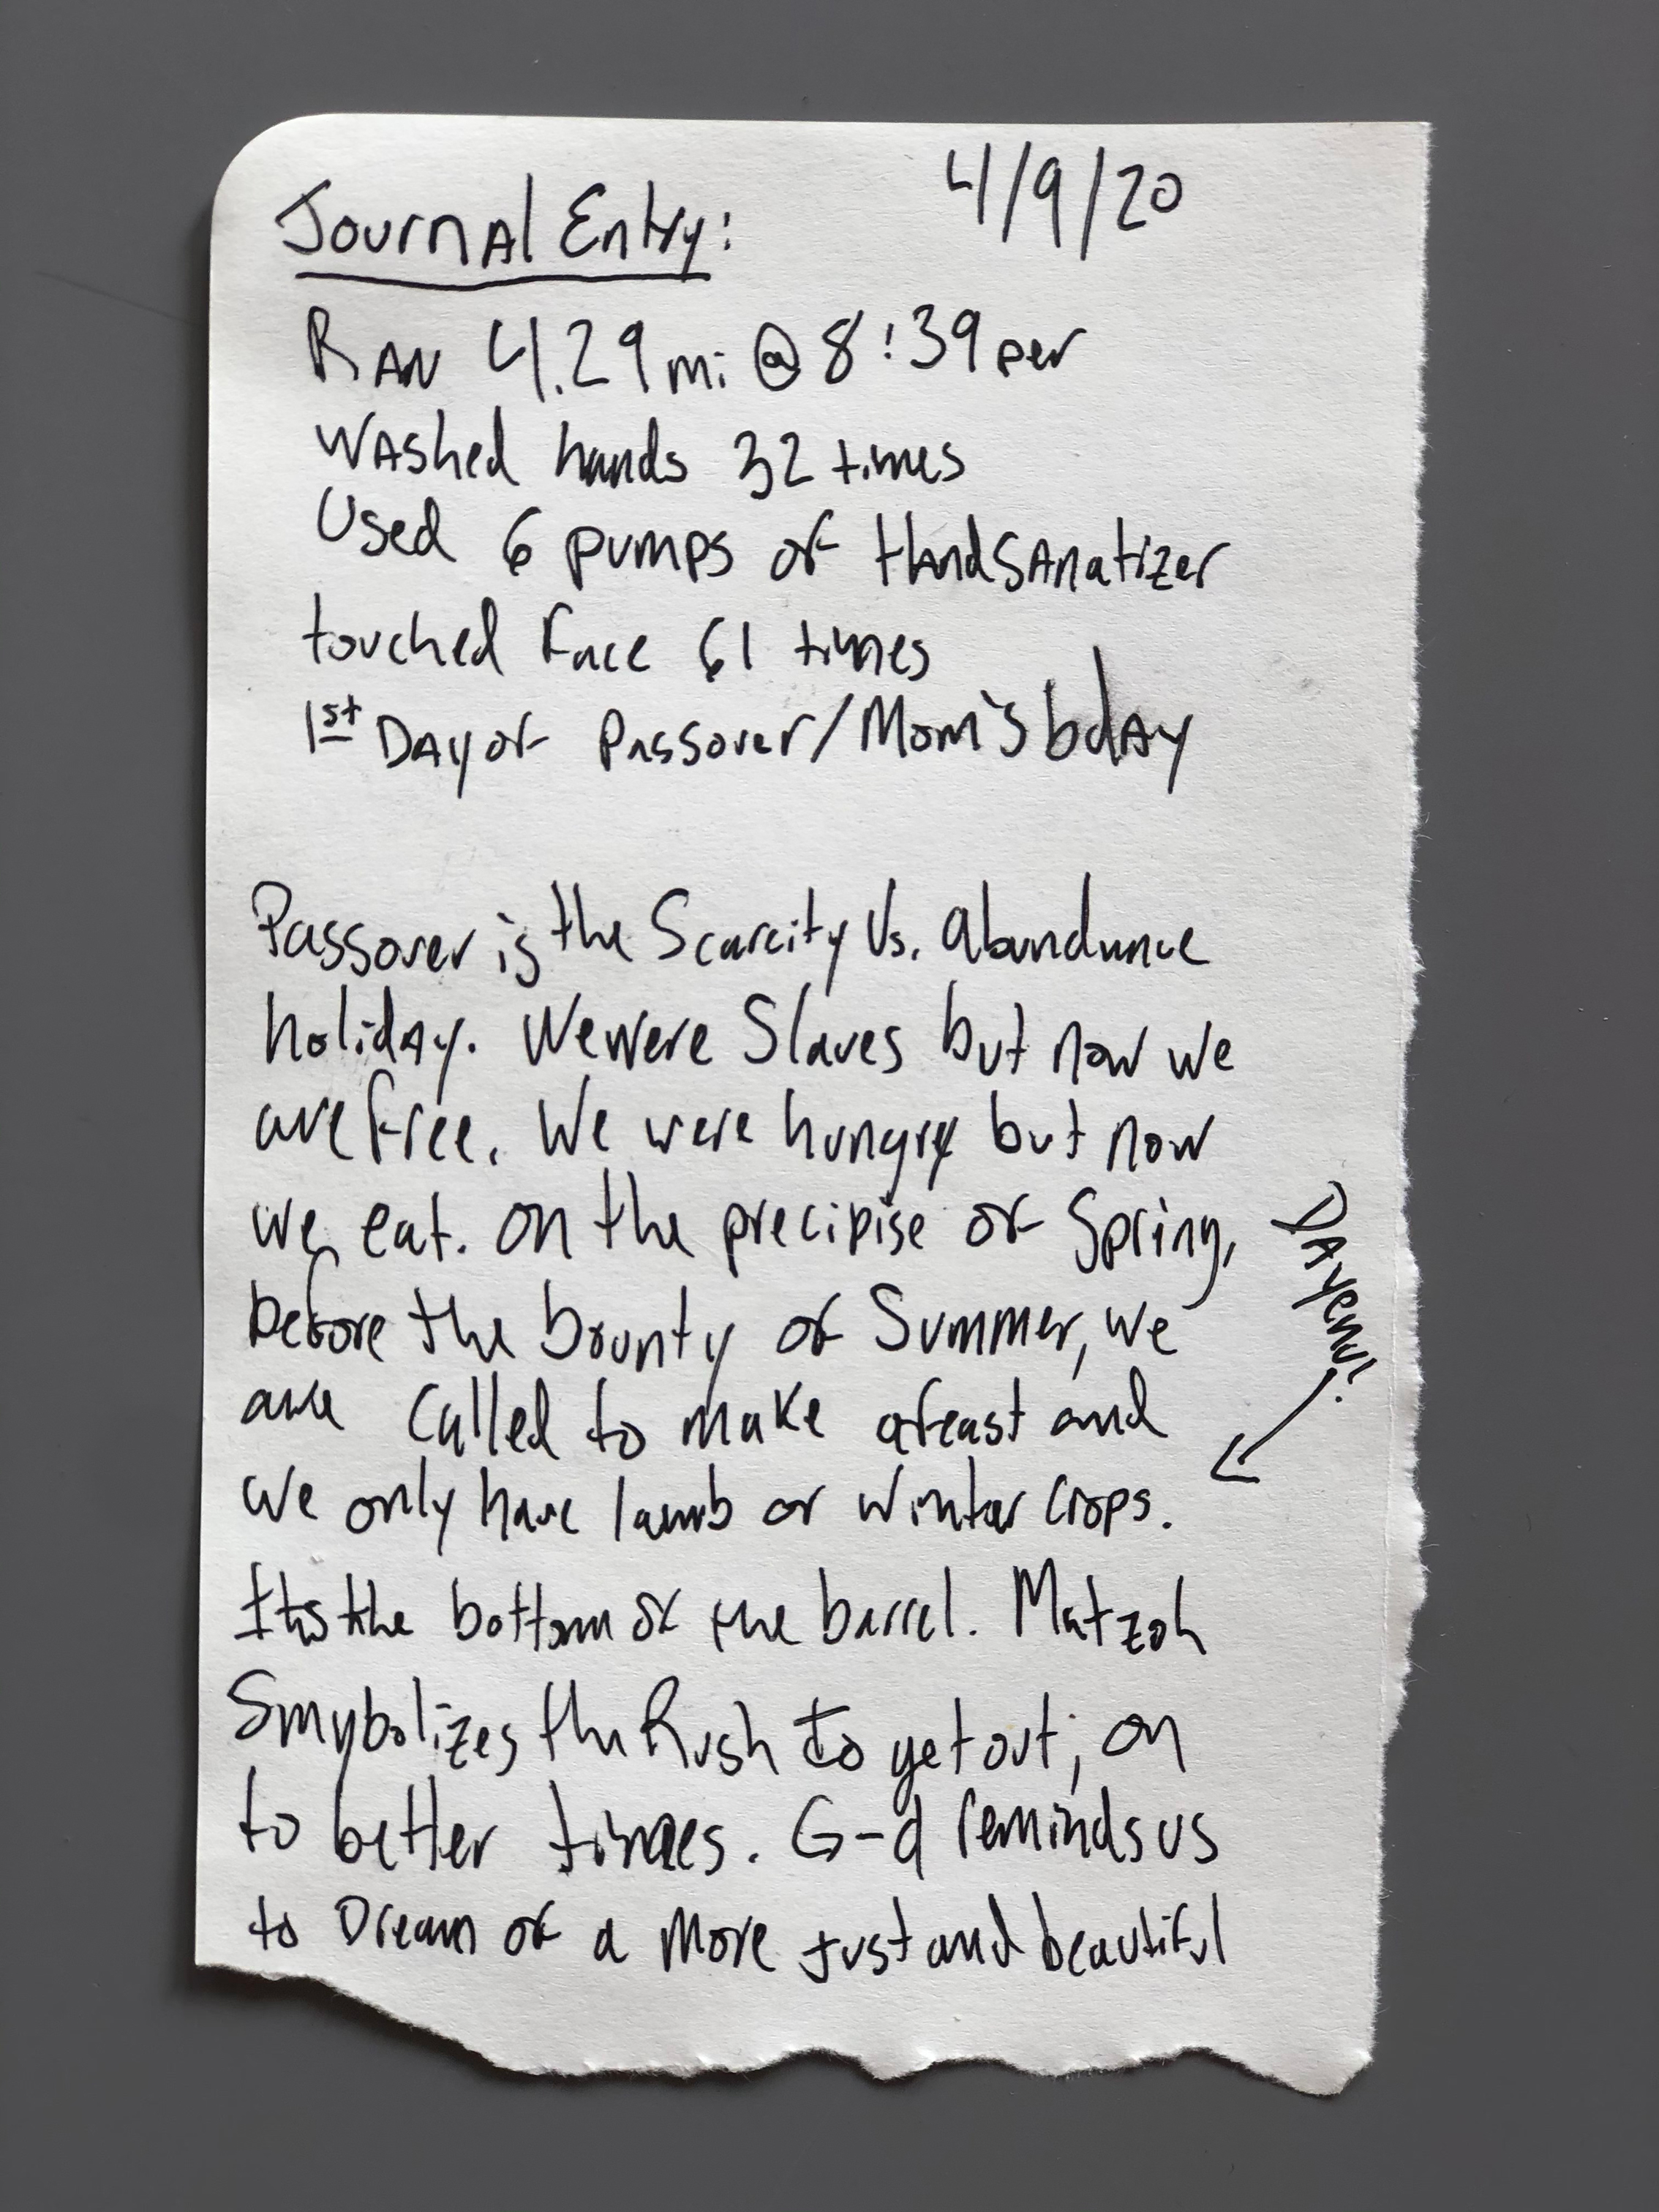 4/9/20
Journal Entry:
Ran 4.29 mi @ 8:39 per
Washed hands 32 times
Used 6 pumps of HandSanatizer
touched face 61 times
1st Day of Passover/Mom's bday
Passover is the Scarcity Vs. abundance
holiday. We were Slaves but now we
are free. We were hungry but now
we eat. On the precipise of Spring,
before the bounty of Summer, we
are called to make a feast and
we only have lamb or winter crops.
Dayenu!
Its the bottom of the barrel. Matzoh
Smybolizes the Rush to get out; on
to better times. G-d reminds us
to Dream of a more just and beautiful